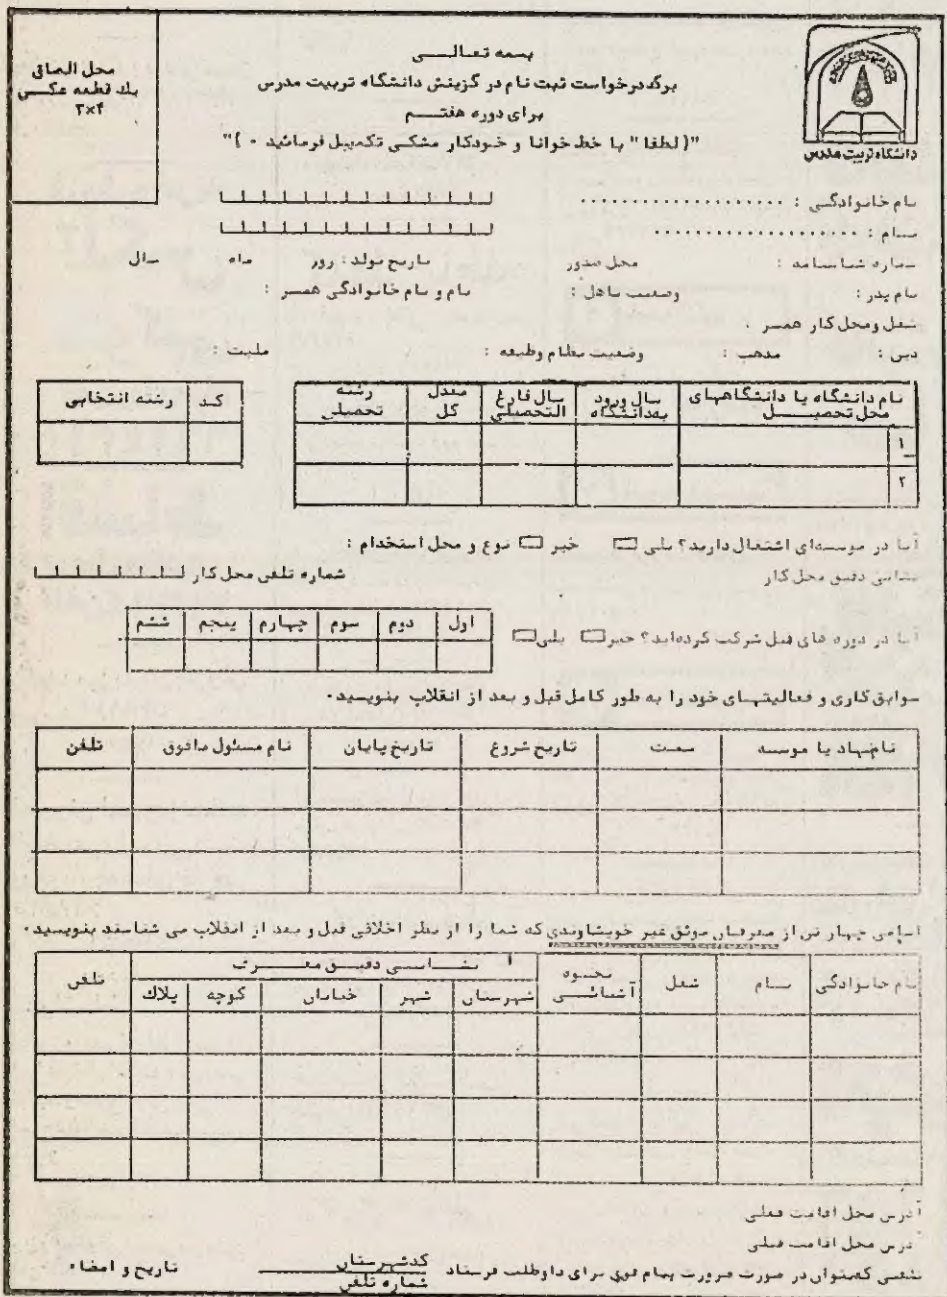 محل الصاق
یک قطعه عکسی
۳×۴
بسمه تعالی
برگ درخواست ثبت نام در گزینش دانشگاه تربیت مدرس
برای دوره هفتم
"(لطفا" با خط خوانا و خودکار مشکی تکمیل فرمائید ۰)"
دانشگاه تربیت مدرس
نام خانوادگی :
نام :
شماره شناسنامه : محل صدور تاریخ تولد : روز ماه سال
نام پدر : وضعیت تاهل : نام و نام خانوادگی همسر :
شغل و محل کار همسر .
دین : مذهب : وضعیت نظام وظیفه : ملیت :
نام دانشگاه یا دانشگاههای محل تحصیل سال ورود بدانشگاه سال فارغ التحصیلی معدل کل رشته تحصیلی
۱
۲
کد رشته انتخابی
آیا در موسسه‌ای اشتغال دارید؟ بلی خیر نوع و محل استخدام :
نشانی دقیق محل کار شماره تلفن محل کار
آیا در دوره های قبل شرکت کرده‌اید؟ خیر بلی
اول دوم سوم چهارم پنجم ششم
سوابق کاری و فعالیتهای خود را به طور کامل قبل و بعد از انقلاب بنویسید۰
نام نهاد یا موسسه سمت تاریخ شروع تاریخ پایان نام مسئول مافوق تلفن
اسامی چهار تن از معرفان موثق غیر خویشاوندی که شما را از نظر اخلاقی قبل و بعد از انقلاب می شناسند بنویسید۰
نام خانوادگی نام شغل نحوه آشنائی نشانی دقیق معرف تلفن
شهرستان شهر خیابان کوچه پلاک
آدرس محل اقامت فعلی
آدرس محل اقامت قبلی
تلفنی که بتوان در صورت ضرورت پیام فوری برای داوطلب فرستاد کد شهرستان تاریخ و امضاء
شماره تلفن